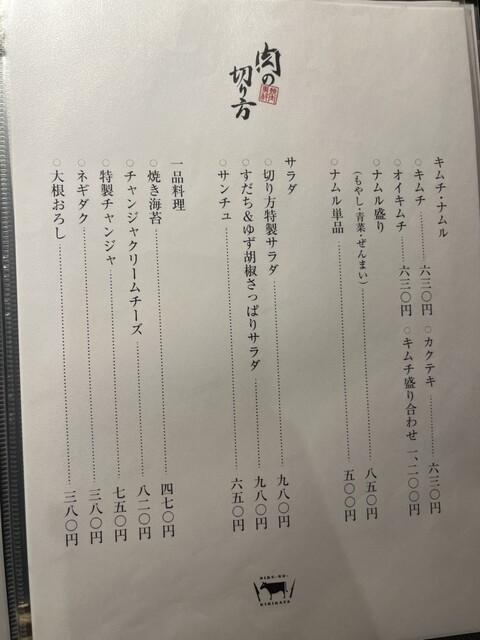 肉の
切り方
キムチ・ナムル
○キムチ 六三〇円
○カクテキ 六三〇円
○オイキムチ 六三〇円
○キムチ盛り合わせ 一、二〇〇円
○ナムル盛り 八五〇円
(もやし・青菜・ぜんまい)
○ナムル単品 五〇〇円
サラダ
○切り方特製サラダ 九八〇円
○すだち&ゆず胡椒さっぱりサラダ 九八〇円
○サンチュ 六五〇円
一品料理
○焼き海苔 四七〇円
○チャンジャクリームチーズ 八二〇円
○特製チャンジャ 七五〇円
○ネギダク 三八〇円
○大根おろし 三八〇円
NIKU-NO-
KIRIKATA